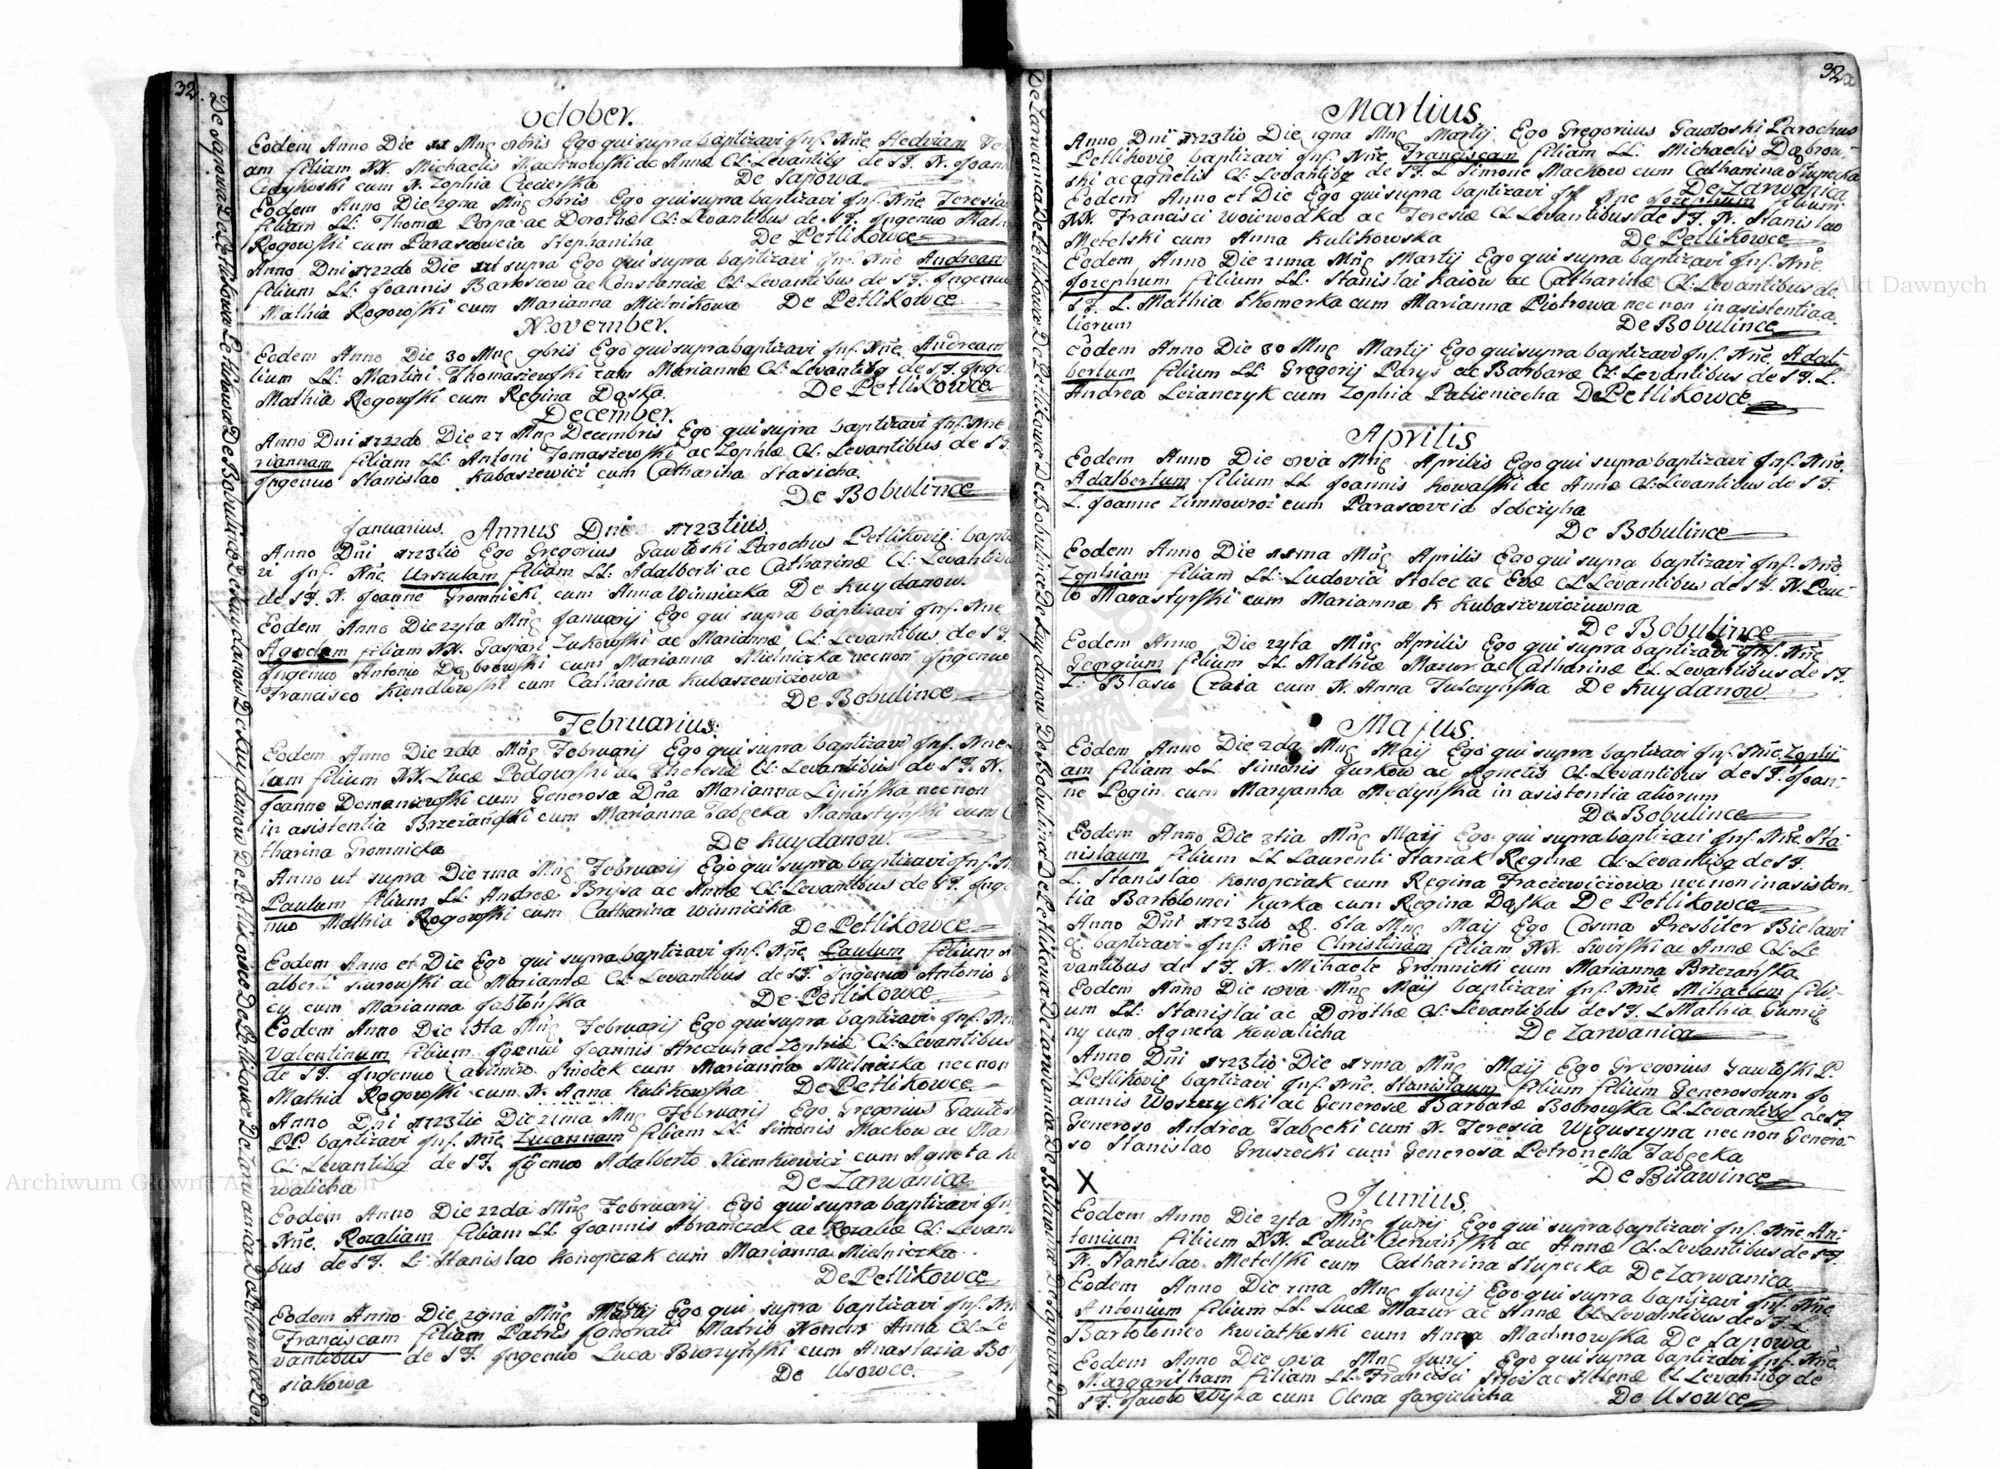 32.
October.
Eodem Anno Die 11 Mnς 8bris Ego qui supra baptizavi Jnf. Nñe Hedviam
am filiam NN. Michaelis Machnowski ac Annæ Cl: Levantibς de S F. N. Joan
cum N. Zophia De Sapowa
Eodem Anno Die 29na Mnς 8bris Ego qui supra baptizavi Jnf. Nñe Teresia
filiam LL: Thomæ Porpa ac Dorothæ Cl: Levantibus de S F. Jngenuo Math
Rogowski cum Parascæveia Stephaniha De Petlikowce
Anno Dni 1722do Die ut supra Ego qui supra baptizavi Jnf. Nñe Andream
filium LL: Joannis Bartosæw ac Constanciæ Cl: Levantibus de S F. Jngenuo
Mathia Rogowski cum Marianna Mielnikowa De Petlikowce
November.
Eodem Anno Die 30 Mnς 9bris Ego qui supra baptizavi Jnf. Nñe Andream
lium LL: Martini Thomaszewski Mariannæ Cl: Levantibς de S F. Jnge
Mathia Rogowski cum Regina Dąska De Petlikowce
December.
Anno Dni 1722do Die 27 Mnς Decembris Ego qui supra baptizavi Jnf. Nñe
riannam filiam LL: Antoni Tomaszewski ac Zophiæ Cl: Levantibus de S F.
Jngenuo Stanislao Kubaszewicz cum Catharina Stasicha
De Bobulince
Januarius. Annus Dni 1723tius.
Anno Dñi 1723tio Ego Gregorius Gawłoski Parochus Petlikoviς bapti
vi Jnf. Nñe Urszulam filiam LL: Adalberti ac Catharinæ Cl: Levantibu
de S F. N. Joanne Gromnicki cum Anna Winniczka De Kuydanow.
Eodem Anno Die 24ta Mñς Januarij Ego qui supra baptizavi Jnf. Nñe
Agnetem filiam NN. Gaspari Zukowski ac Mariannæ Cl: Levantibus de S F.
Jngenuo Antonio Dąbrowski cum Marianna Mielniczka nec non Jngenuo
Francisco cum Catharina Kubaszewiczowa
De Bobulince
Februarius.
Eodem Anno Die 2da Mñς Februarij Ego qui supra baptizavi Jnf. Nñe
lam filium NN. Lucæ Podgurski ac Theresiæ Cl: Levantibus de S F. N.
Joanne Domaniewski cum Generosa Dña Marianna Lipinska nec non
in asistentia Brzezański cum Marianna Tabęcka Manastyrski cum C
tharina Gromnicka De Kuydanow.
Anno ut supra Die 7ma Mñς Februarij Ego qui supra baptizavi Jnf. N
Paulum filium LL: Andreæ Brysa ac Annæ Cl: Levantibus de S F. Jnge
nuo Mathia Rogowski cum Catharina Winnicika
De Petlikowce
Eodem Anno et Die Ego qui supra baptizavi Jnf. Nñe Paulum filium
alberti Kurowski ac Mariannæ Cl: Levantibus de S F. Jngenuo Antonio
cy cum Marianna Jabłońska De Petlikowce
Eodem Anno Die 15ta Mñς Februarij Ego qui supra baptizavi Jnf. Nñ
Valentinum filium Joannis ac Zophiæ Cl: Levantibus
de S F. Jngenuo Casimiro Smolek cum Marianna Mielniczka nec non
Mathia Rogowski cum N. Anna Kulikowska De Petlikowce
Anno Dñi 1723tio Die 21ma Mñς Februarij Ego Gregorius Gawłos
PP. baptizavi Jnf. Nñe Zuzannam filiam LL: Simonis Mackow ac Mari
Cl: Levantibς de S F. Adalberto Niemkiewicz cum Agneta Ko
walicha De Zarwanica
Eodem Anno Die 22da Mñς Februarij Ego qui supra baptizavi Jn
Nñe. Rozaliam filiam LL Joannis Abramczak ac Rozaliæ Cl: Levan
bus de S F. L: Stanislao Konopczak cum Marianna Mielniczka
De Petlikowce
Eodem Anno Die 29na Mñς Ego qui supra baptizavi Jnf. Nñ
Franciscam filiam Patris Jgnorati Matris Nomen Anna Cl: Le
vantibus de S F. Jngenuo Luca Burzyński cum Anastazia Bo
siakowa De Usowce.
32a
Martius
Anno Dni 1723tio Die 19na Mñς Martij Ego Gregorius Gawłoski Parochus
Petlikoviς baptizavi Jnf. Nñe Franciscam filiam LL. Michaelis Dąbrow-
ski ac Agnetis Cl: Levantibς de S F. L Simone Mackow cum Catharina Stupecka
De Zarwanica
Eodem Anno et Die Ego qui supra baptizavi Jnf Nne Jozephum filium
NN. Francisci Woiewodka ac Teresiæ Cl: Levantibus de S F. N. Stanislao
Metelski cum Anna Kulikowska De Petlikowce
Eodem Anno Die 21ma Mñς Martij Ego qui supra baptizavi Jnf. Nñe.
Jozephum filium LL. Stanislai Kaiow ac Catharinæ Cl: Levantibus de
S F. L. Mathia Skomerka cum Marianna Piotrowa nec non in asistentia a-
liorum De Bobulince
Eodem Anno Die 30 Mnς Martij Ego qui supra baptizavi Jnf. Nñe. Adal-
bertum filium LL: Gregorij Parys ac Barbaræ Cl: Levantibus de S F. L.
Andrea Leżanczyk cum Zophia Patieniecha De Petlikowce
Aprilis
Eodem Anno Die 8va Mñς Aprilis Ego qui supra baptizavi Jnf. Nñe.
Adalbertum filium LL Joannis Kowalski ac Annæ Cl: Levantibus de S F.
L. Joanne Zimnowroz cum Parascæveia Sobczyha
De Bobulince
Eodem Anno Die 11ma Mñς Aprilis Ego qui supra baptizavi Jnf. Nñe
Zophiam filiam LL: Ludovici Stolec ac Evæ Cl: Levantibus de S F. N. Pau-
lo Manastyrski cum Marianna K Kubaszewiczuwna
De Bobulince
Eodem Anno Die 24ta Mñς Aprilis Ego qui supra baptizavi Jnf. Nñe
Georgium filium LL Mathiæ Mazur ac Catharinæ Cl. Levantibus de S F.
L. Blasio Czaia cum N. Anna Tulczyńska De Kuydanow
Majus.
Eodem Anno Die 2da Mñς Maij Ego qui supra baptizavi Jnf. Nñe Zophi-
am filiam LL Simonis Jurkow ac Agnetis Cl: Levantibus de S F. Joan-
ne Login cum Maryanna Medyńska in asistentia aliorum
De Bobulince
Eodem Anno Die 3tia Mñς Maij Ego qui supra baptizavi Jnf. Nñe. Sta-
nislaum filium LL Laurenti Stanak Reginæ Cl: Levantibς de S F.
L. Stanislao Konopczak cum Regina Fraczewiczowa nec non in asisten-
tia Bartolomei Kurka cum Regina Dąska De Petlikowce
Anno Dñi 1723tio D. 6ta Mñς Maij Ego Cosma Presbiter Bielawi
baptizavi Jnf. Nñe Christinam filiam NN. ac Annæ Cl: Le
vantibus de S F. N. Mihaele Gromnicki cum Marianna Brzezańska
Eodem Anno Die 18va Mnς Maij baptizavi Jnf. Nñe Mihaelem fili-
um LL: Stanislai ac Dorothæ Cl: Levantibus de S F. L Mathia
ny cum Agneta Kowalicha De Zarwanica
Anno Dñi 1723tio Die 17ma Mñς Maij Ego Gregorius Gawłoski P.
Petlikoviς baptizavi Jnf. Nñe. Stanislaum filium filium Generosorum Jo
annis Woszczycki ac Generosæ Barbaræ Bobrowska Cl: Levantibς de S F.
Generoso Andrea Tabęcki cum N. Teresia Wiguszyna nec non Genero-
so Stanislao Gruszecki cum Generosa Petronella Tabęcka
De Bilawince
X
Junius.
Eodem Anno Die 4ta Mñς Junij Ego qui supra baptizavi Jnf. Nñe An-
tonium filium NN. Pauli Czerwinski ac Annæ Cl: Levantibus de S F.
N. Stanislao Metelski cum Catharina Stupecka De Zarwanica
Eodem Anno Die 7ma Mnς Junij Ego qui supra baptizavi Jnf. Nñe.
Antonium filium LL. Lucæ Mazur ac Annæ Cl: Levantibus de S F. L
Bartolomeo Kwiatkoski cum Anna Machnowska De Sapowa
Eodem Anno Die 8va Mnς Junij Ego qui supra baptizavi Jnf. Nñe.
Margaritham filiam LL. Francisci ac Helenæ Cl: Levantibς de
S F. Jacobo Wyka cum Olena Jargielicha De Usowce
Archiwum Główne Akt Dawnych